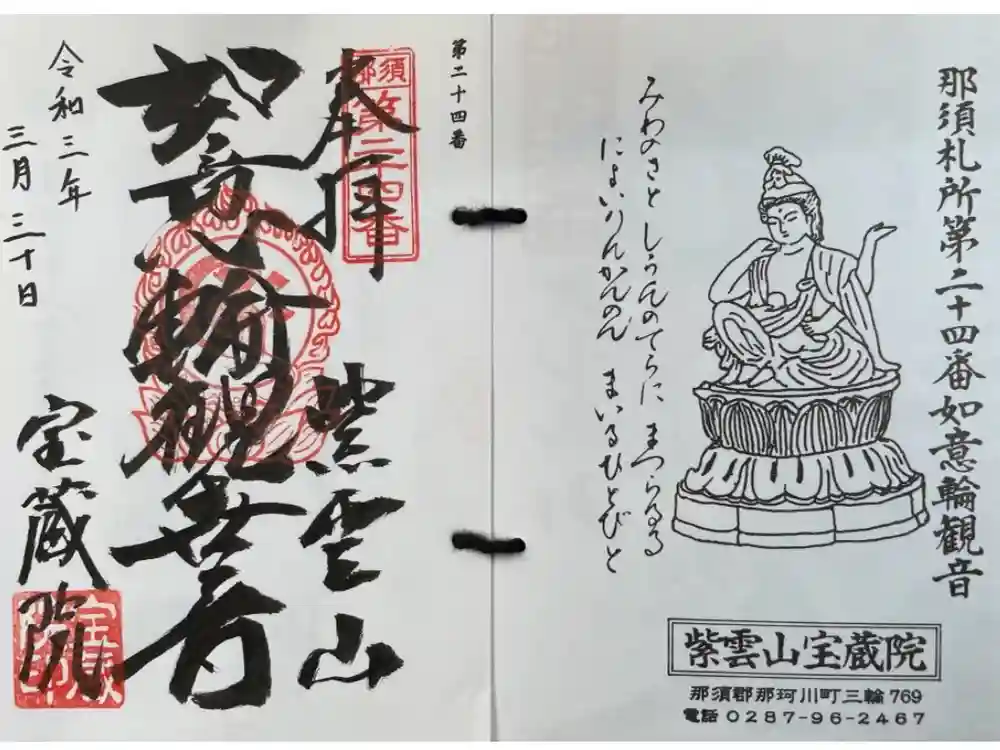 那須札所第二十四番如意輪観音
みわのさと しうんのてらに まつらるる
にょいりんかんのん まいるひとびと
紫雲山宝蔵院
那須郡那珂川町三輪769
電話 0287-96-2467
第二十四番
那須
第二十四番
奉拝
紫雲山
如意輪観世音
令和三年
三月三十日
宝蔵院